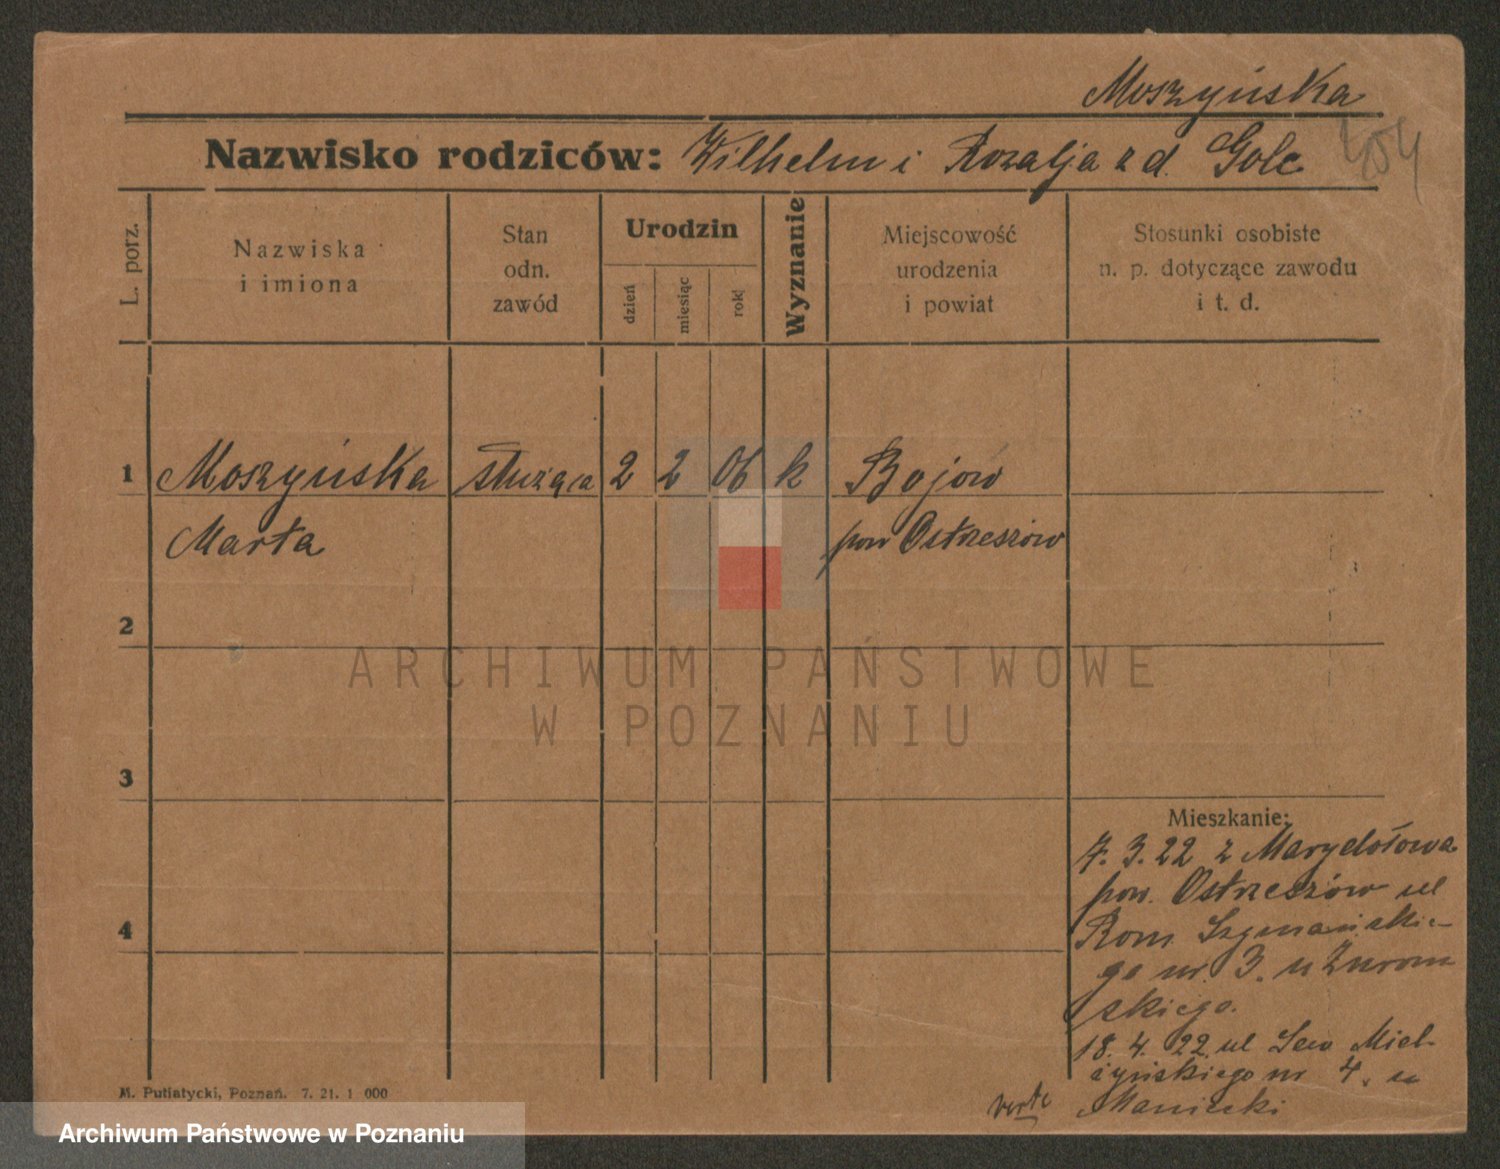 Moszyńska
Nazwisko rodziców: Wilhelm i Rozalja z d. Golc
L. porz.
Nazwiska
i imiona
Stan
odn.
zawód
Urodzin
dzień
miesiąc
rok
Wyznanie
Miejscowość
urodzenia
i powiat
Stosunki osobiste
n. p. dotyczące zawodu
i t. d.
1 Moszyńska służąca 2 2 06 k Bojów
Marta pow Ostrzeszów
2
ARCHIWUM PAŃSTWOWE
W POZNANIU
3
Mieszkanie:
7. 3. 22 z Marydołowa
pow. Ostrzeszów ul
4
Rom Szymańskie-
go nr. 3. u Żurom
skiego.
18. 4. 22 ul Sew Miel-
żyńskiego nr 4. u
verte
M. Putiatycki, Poznań. 7. 21. 1 000
Archiwum Państwowe w Poznaniu